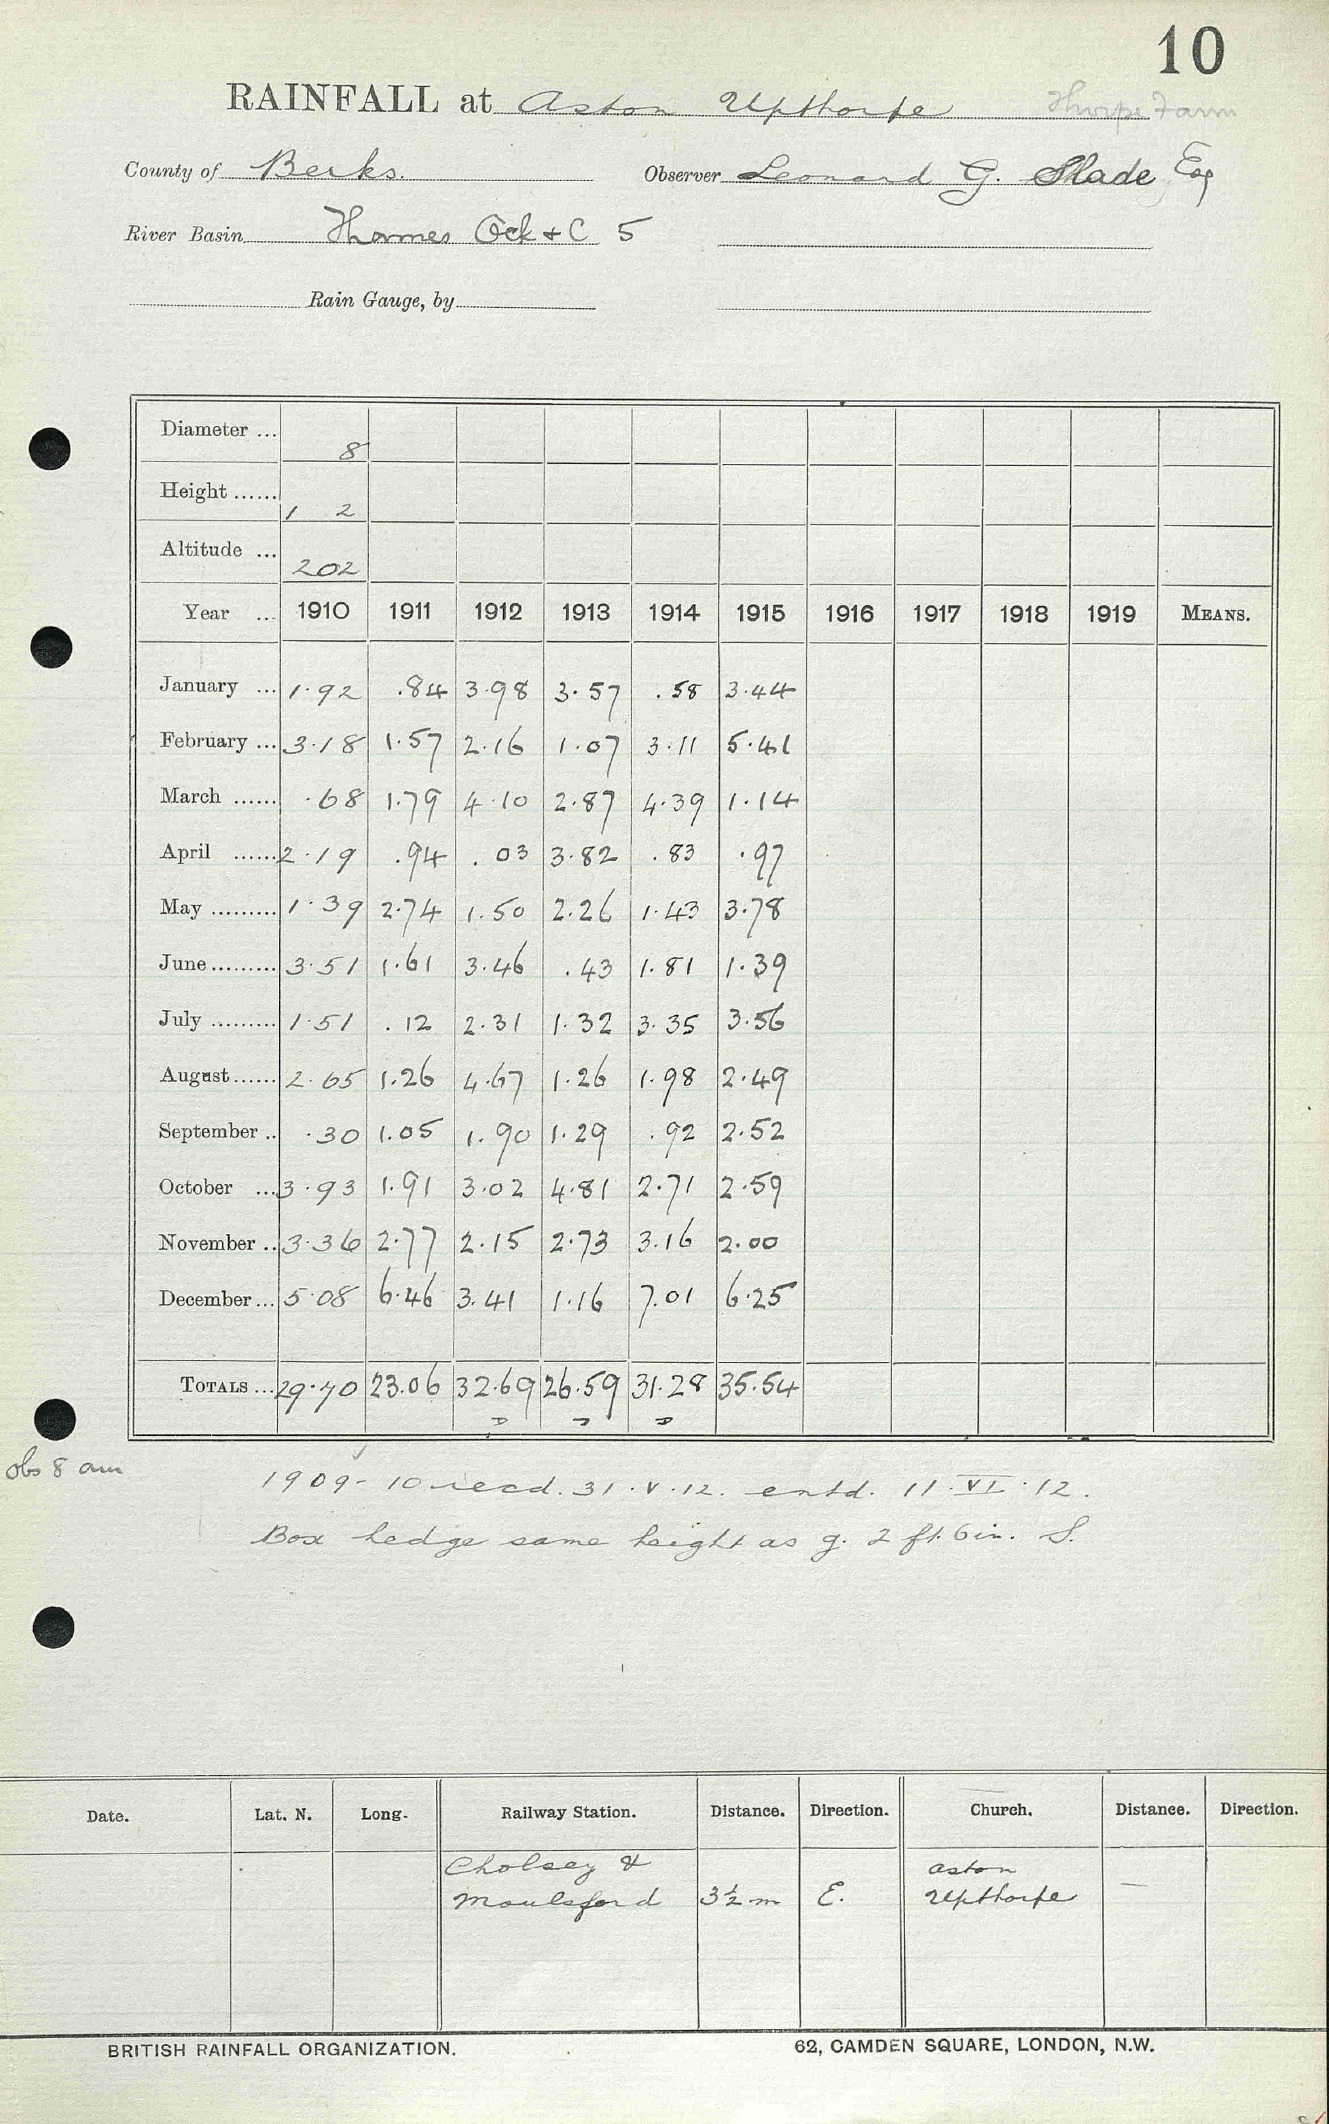 10
RAINFALL at Aston Upthorpe Thorpe Farm
County of Berks. Observer Leonard G. Slade Esq
River Basin Thames Ock & C 5
Rain Gauge, by
Diameter ... 8
Height ...... 1 2
Altitude ... 202
Year ... 1910 1911 1912 1913 1914 1915 1916 1917 1918 1919 MEANS.
January ... 1.92 .84 3.98 3.57 .58 3.44
February ... 3.18 1.57 2.16 1.07 3.11 5.41
March ...... .68 1.79 4.10 2.87 4.39 1.14
April ...... 2.19 .94 .03 3.82 .83 .97
May ......... 1.39 2.74 1.50 2.26 1.43 3.78
June ......... 3.51 1.61 3.46 .43 1.81 1.39
July ......... 1.51 .12 2.31 1.32 3.35 3.56
August ...... 2.65 1.26 4.67 1.26 1.98 2.49
September .. .30 1.05 1.90 1.29 .92 2.52
October ... 3.93 1.91 3.02 4.81 2.71 2.59
November .. 3.36 2.77 2.15 2.73 3.16 2.00
December ... 5.08 6.46 3.41 1.16 7.01 6.25
TOTALS ... 29.70 23.06 32.69 26.59 31.28 35.54
obs 8 am
1909-10 recd. 31.V.12. entd. 11.VI.12.
Box hedge same height as g. 2 ft. 6 in. S.
Date. Lat. N. Long. Railway Station. Distance. Direction. Church. Distance. Direction.
Cholsey & Aston
Moulsford 3½ m E. Upthorpe —
BRITISH RAINFALL ORGANIZATION. 62, CAMDEN SQUARE, LONDON, N.W.